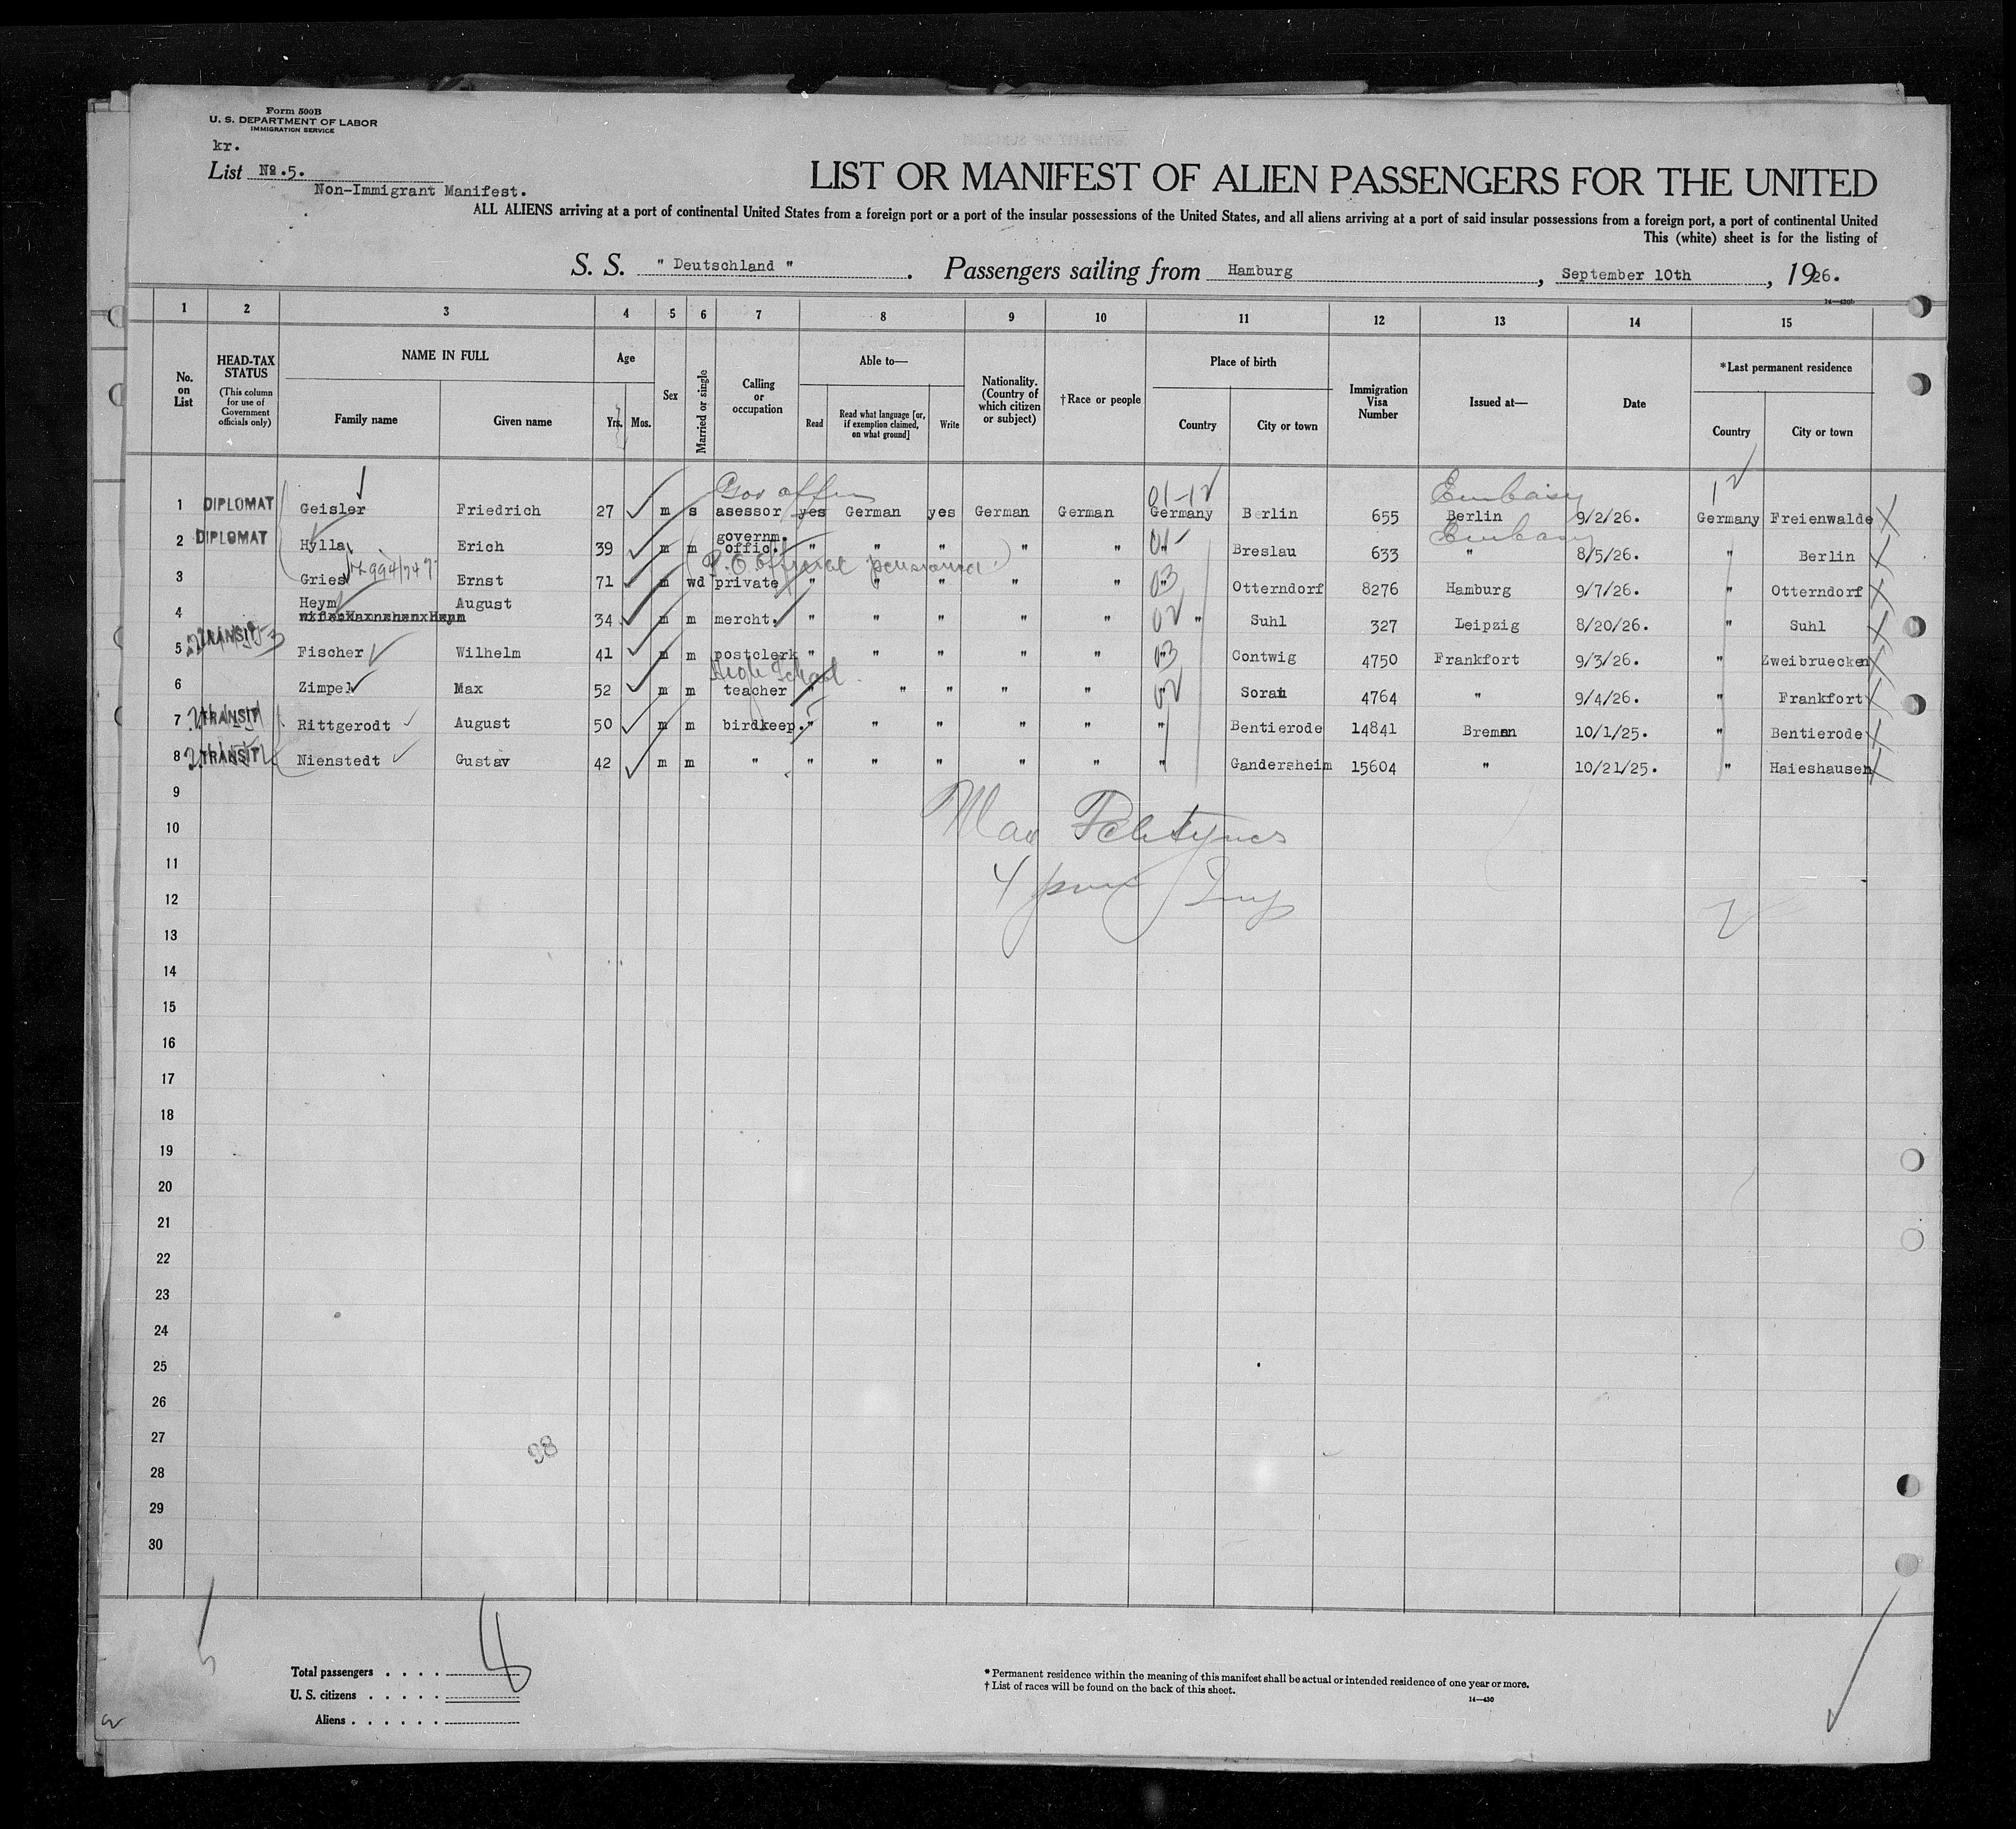 Form 500B
U. S. DEPARTMENT OF LABOR
IMMIGRATION SERVICE
kr.
List No.5.
Non-Immigrant Manifest.
LIST OR MANIFEST OF ALIEN PASSENGERS FOR THE UNITED
ALL ALIENS arriving at a port of continental United States from a foreign port or a port of the insular possessions of the United States, and all aliens arriving at a port of said insular possessions from a foreign port, a port of continental United
This (white) sheet is for the listing of
S. S. " Deutschland ". Passengers sailing from Hamburg, September 10th, 1926.
14—430b
1 2 3 4 5 6 7 8 9 10 11 12 13 14 15
No. on List
HEAD-TAX STATUS
(This column for use of Government officials only)
NAME IN FULL
Family name Given name
Age
Yrs. Mos.
Sex
Married or single
Calling or occupation
Able to—
Read
Read what language [or, if exemption claimed, on what ground]
Write
Nationality. (Country of which citizen or subject)
†Race or people
Place of birth
Country City or town
Immigration Visa Number
Issued at—
Date
*Last permanent residence
Country City or town
Embassy
1 DIPLOMAT Geisler Friedrich 27 m s asessor yes German yes German German Germany Berlin 655 Berlin 9/2/26. Germany Freienwalde
Embassy
2 DIPLOMAT Hylla Erich 39 m m governm. offic. " " " " " 01 Breslau 633 " 8/5/26. " Berlin
P.O. Official pensioned
3 Gries Ernst 71 m wd private " " " " " 03 " Otterndorf 8276 Hamburg 9/7/26. " Otterndorf
4 Heym August 34 m m mercht. " " " " " 02 " Suhl 327 Leipzig 8/20/26. " Suhl
5 TRANSIT Fischer Wilhelm 41 m m postclerk " " " " " 03 " Contwig 4750 Frankfort 9/3/26. " Zweibruecken
High School
6 Zimpel Max 52 m m teacher " " " " " 02 " Sorau 4764 " 9/4/26. " Frankfort
7 TRANSIT Rittgerodt August 50 m m birdkeep. " " " " " " Bentierode 14841 Bremen 10/1/25. " Bentierode
8 TRANSIT Nienstedt Gustav 42 m m " " " " " " " Gandersheim 15604 " 10/21/25. " Haieshausen
9
10
11
12
13
14
15
16
17
18
19
20
21
22
23
24
25
26
27
98
28
29
30
Total passengers . . . .
U. S. citizens . . . . .
Aliens . . . . . .
* Permanent residence within the meaning of this manifest shall be actual or intended residence of one year or more.
† List of races will be found on the back of this sheet.
14—430